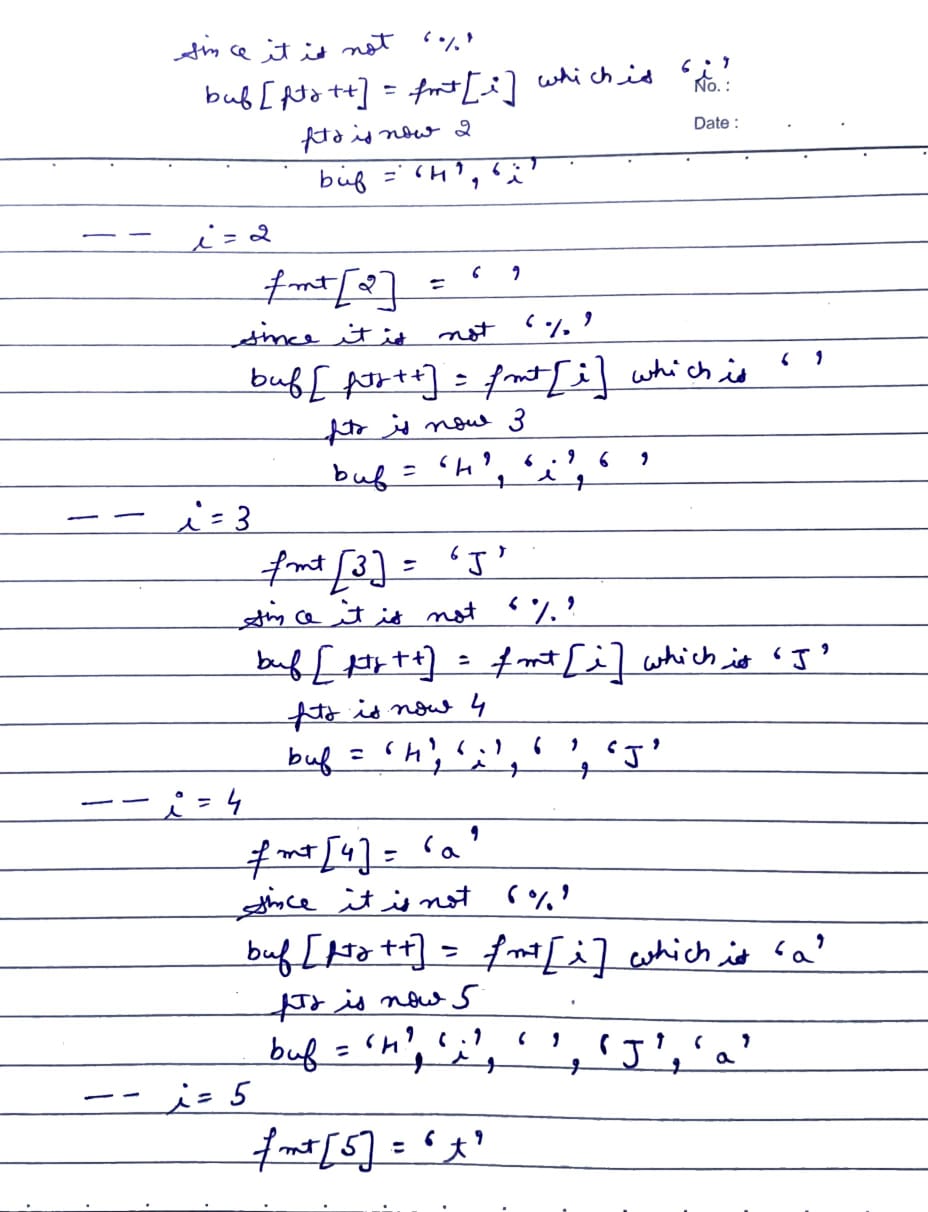 since it is not '%'
buf[ptr++] = fmt[i] which is 'i'
No. :
ptr is now 2
Date :
buf = 'H', 'i'
-- i = 2
fmt[2] = ' '
since it is not '%'
buf[ptr++] = fmt[i] which is ' '
ptr is now 3
buf = 'H', 'i', ' '
-- i = 3
fmt[3] = 'J'
since it is not '%'
buf[ptr++] = fmt[i] which is 'J'
ptr is now 4
buf = 'H', 'i', ' ', 'J'
-- i = 4
fmt[4] = 'a'
since it is not '%'
buf[ptr++] = fmt[i] which is 'a'
ptr is now 5
buf = 'H', 'i', ' ', 'J', 'a'
-- i = 5
fmt[5] = 't'